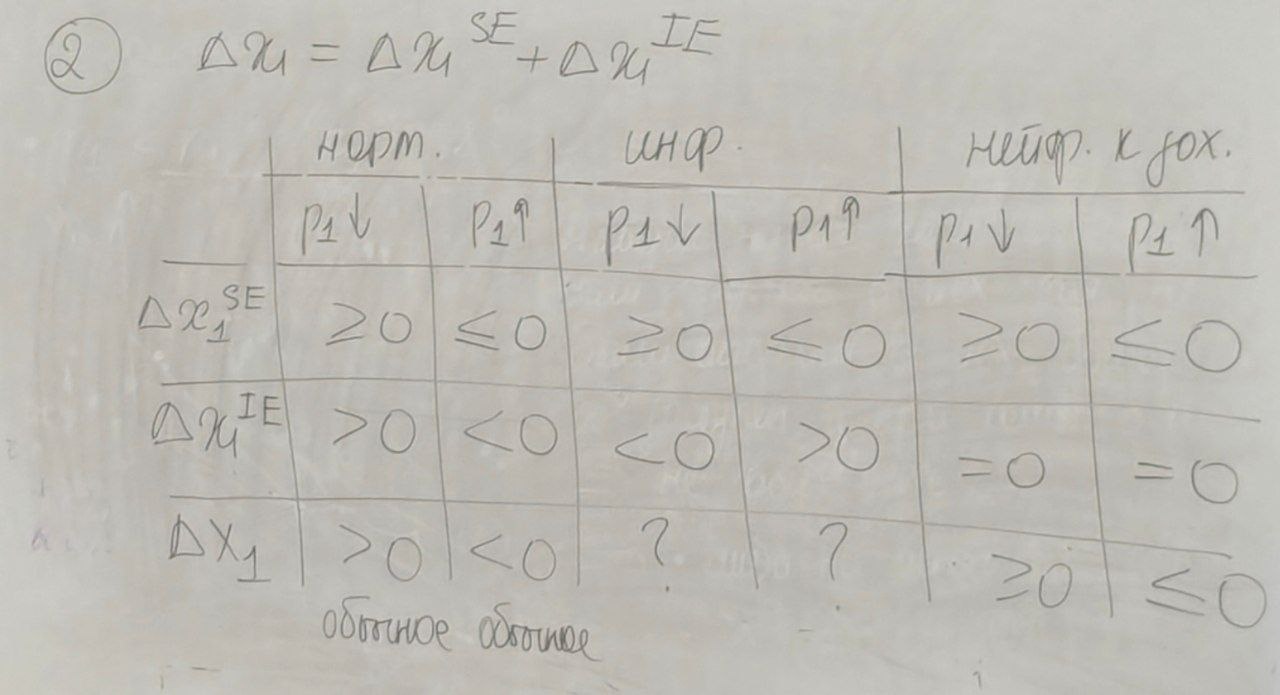 ② Δx₁ = Δx₁^SE + Δx₁^IE
норм. инф. нейтр. к дох.
p₁↓ p₁↑ p₁↓ p₁↑ p₁↓ p₁↑
Δx₁^SE ≥0 ≤0 ≥0 ≤0 ≥0 ≤0
Δx₁^IE >0 <0 <0 >0 =0 =0
Δx₁ >0 <0 ? ? ≥0 ≤0
обычное обычное